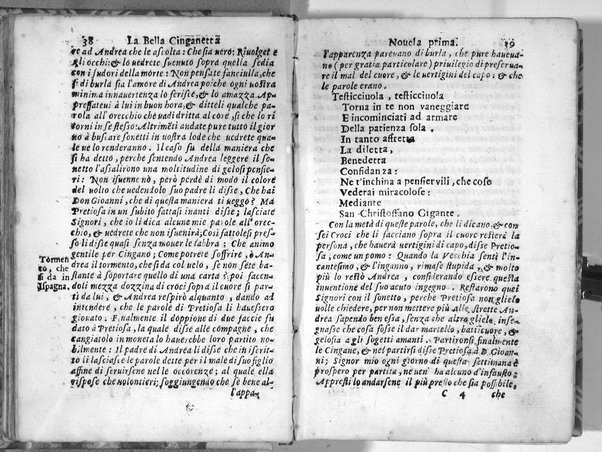 38 La Bella Cinganetta
re ad Andrea che le ascolta: Che sia uero; Riuolget e
gli occhi: & lo uedrete suenuto sopra quella sedia
con i sudori della morte: Non pensate fanciulla, che
si di burla sia l'amore di Andrea poiche ogni uostra
minima innauertenza lo ferisce, & lo amazza. Ap
pressateui à lui in buon hora, & ditteli qualche pa-
rola all' orecchio che uadi dritta al cor e, si che lo ri
torni in se stesso: Altrimēti andate pure tutto il gior
no à buscare sonetti in uostra lode che uedrete qua-
le ue lo renderanno. Il caso su della maniera che
si ha detto, perche sentendo Andrea leggere il so-
netto l'assalirono una moltitudine di gelosi pensie-
ri: Non isuenne nò, però perdè di modo il colore
del uolto che uedendolo suo padre li disse, Che hai
Don Gioanni, che di questa maniera ti ueggo? Ma
Pretiosa in un subito fattasi inanti disse; lasciate
Signori, che io li dica alcune mie parole all' orec-
chio, & uedrete che non isuenirà; Cosi fattolesi pres-
so li disse quasi senza mouer le labbra: Che animo
gentile per Cingano; Come potrete soffrire, ò An-
drea il tormento, che si da col uelo, se non sete ba-
stante à soportare quello di una carta? poi facen-
doti mezza dozzina di croci sopra il cuore si par-
tì da lui, & Andrea respirò alquanto, dando ad
intendere, che le parole di Pretiosa li hauessero
giouato. Finalmente il doppione di due faccie fu
dato à Pretiosa, la quale disse alle compagne, che
cangiatolo in moneta lo hauerebbe loro partito no-
bilmente: Il padre di Andrea li disse che in iscrit-
to li lasciasse le parole dette per il male di suo figlio
affine di seruirsene nel le occorenze; al quale ella
rispose che uolontieri; soggiungendo che se bene al-
l'appa-
Tormen
to, che
si da in
Ispagna,
Nouela prima. 39
l'apparenza pareuano di burla, che pure haueua-
no (per gratia particolare) priuilegio di preserua-
re il mal del cuore, & le uertigini del capo: & che
le parole erano.
Testicciuola, testicciuola
Torna in te non vaneggiare
E incominciati ad armare
Della patienza sola.
In tanto affretta
La diletta,
Benedetta
Confidanza:
Ne t'inchina a pensier vili, che cose
Vederai miracolose:
Mediante
San Christoffano Gigante.
Con la metà di queste parole, che li dicano & con
sei Croci che si facciano sopra il cuore resterà la
persona, che hauerà vertigini di capo, disse Pretio-
sa, come un pomo: Quando la Vecchia sentì l'in-
cantesimo, & l'inganno, rimase stupida, & molto
più lo restò Andrea, considerando essere questa
inuentione del suo acuto ingegno. Restarono quei
Signori con il sonetto, perche Pretiosa non glielo
uolle chiedere, per non mettere più alle strette An-
drea sapendo ben essa, senza che altro glielo inse-
gnasse che cosa fosse il dar martello, batticuore, &
gelosia a gli sogetti amanti. Partironsi finalmente
le Cingane, & nel partirsi disse Pretiosa à D. Gioan-
ni; Signor mio ogni giorno di questa settimana è
prospero per partita, ne uen' ha alcuno d'infausto:
Appresti lo andarsene il più presto che sia possibile,
C 4 che